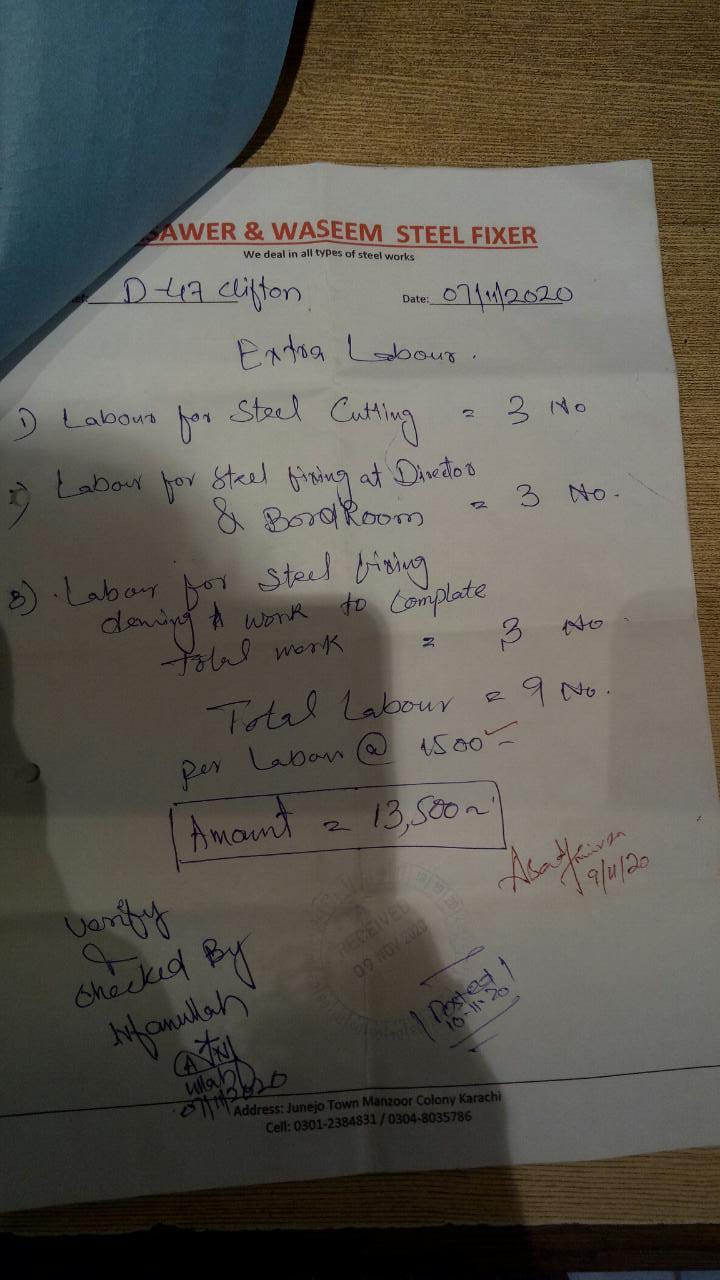 SAWER & WASEEM STEEL FIXER
We deal in all types of steel works
D-47 Clifton Date: 07/11/2020
Extra Labour.
1) Labour for Steel Cutting = 3 No
2) Labour for Steel fixing at Director
& BordRoom = 3 No.
3) Labour for Steel fixing
work to Complate
total work = 3 No
Total Labour = 9 No.
per Labour @ 1500
Amount = 13,500
9/11/20
Verify
&
Checked By
Irfanullah
07/11/2020
RECEIVED
09 NOV 2020
Posted
10-11-20
Address: Junejo Town Manzoor Colony Karachi
Cell: 0301-2384831 / 0304-8035786